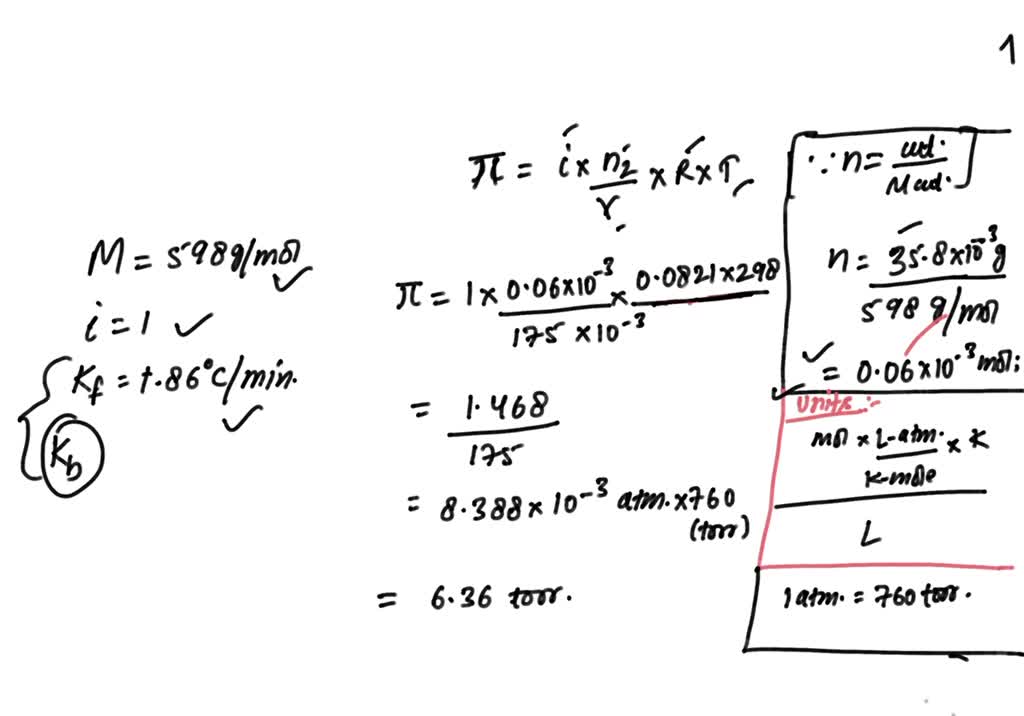 1
π = i × n₂/V × R × T
M = 598 g/mol
i = 1 ✓
Kf = 1.86°C/min.
Kb
π = 1 × 0.06×10⁻³/175 × 10⁻³ × 0.0821×298
= 1.468/175
= 8.388 × 10⁻³ atm. × 760
(torr)
= 6.36 torr.
∵ n = wt./M wt.
n = 35.8×10⁻³g/598 g/mol
= 0.06×10⁻³ mol.
Units :-
mol × L-atm./K-mole × K
L
1 atm. = 760 torr.